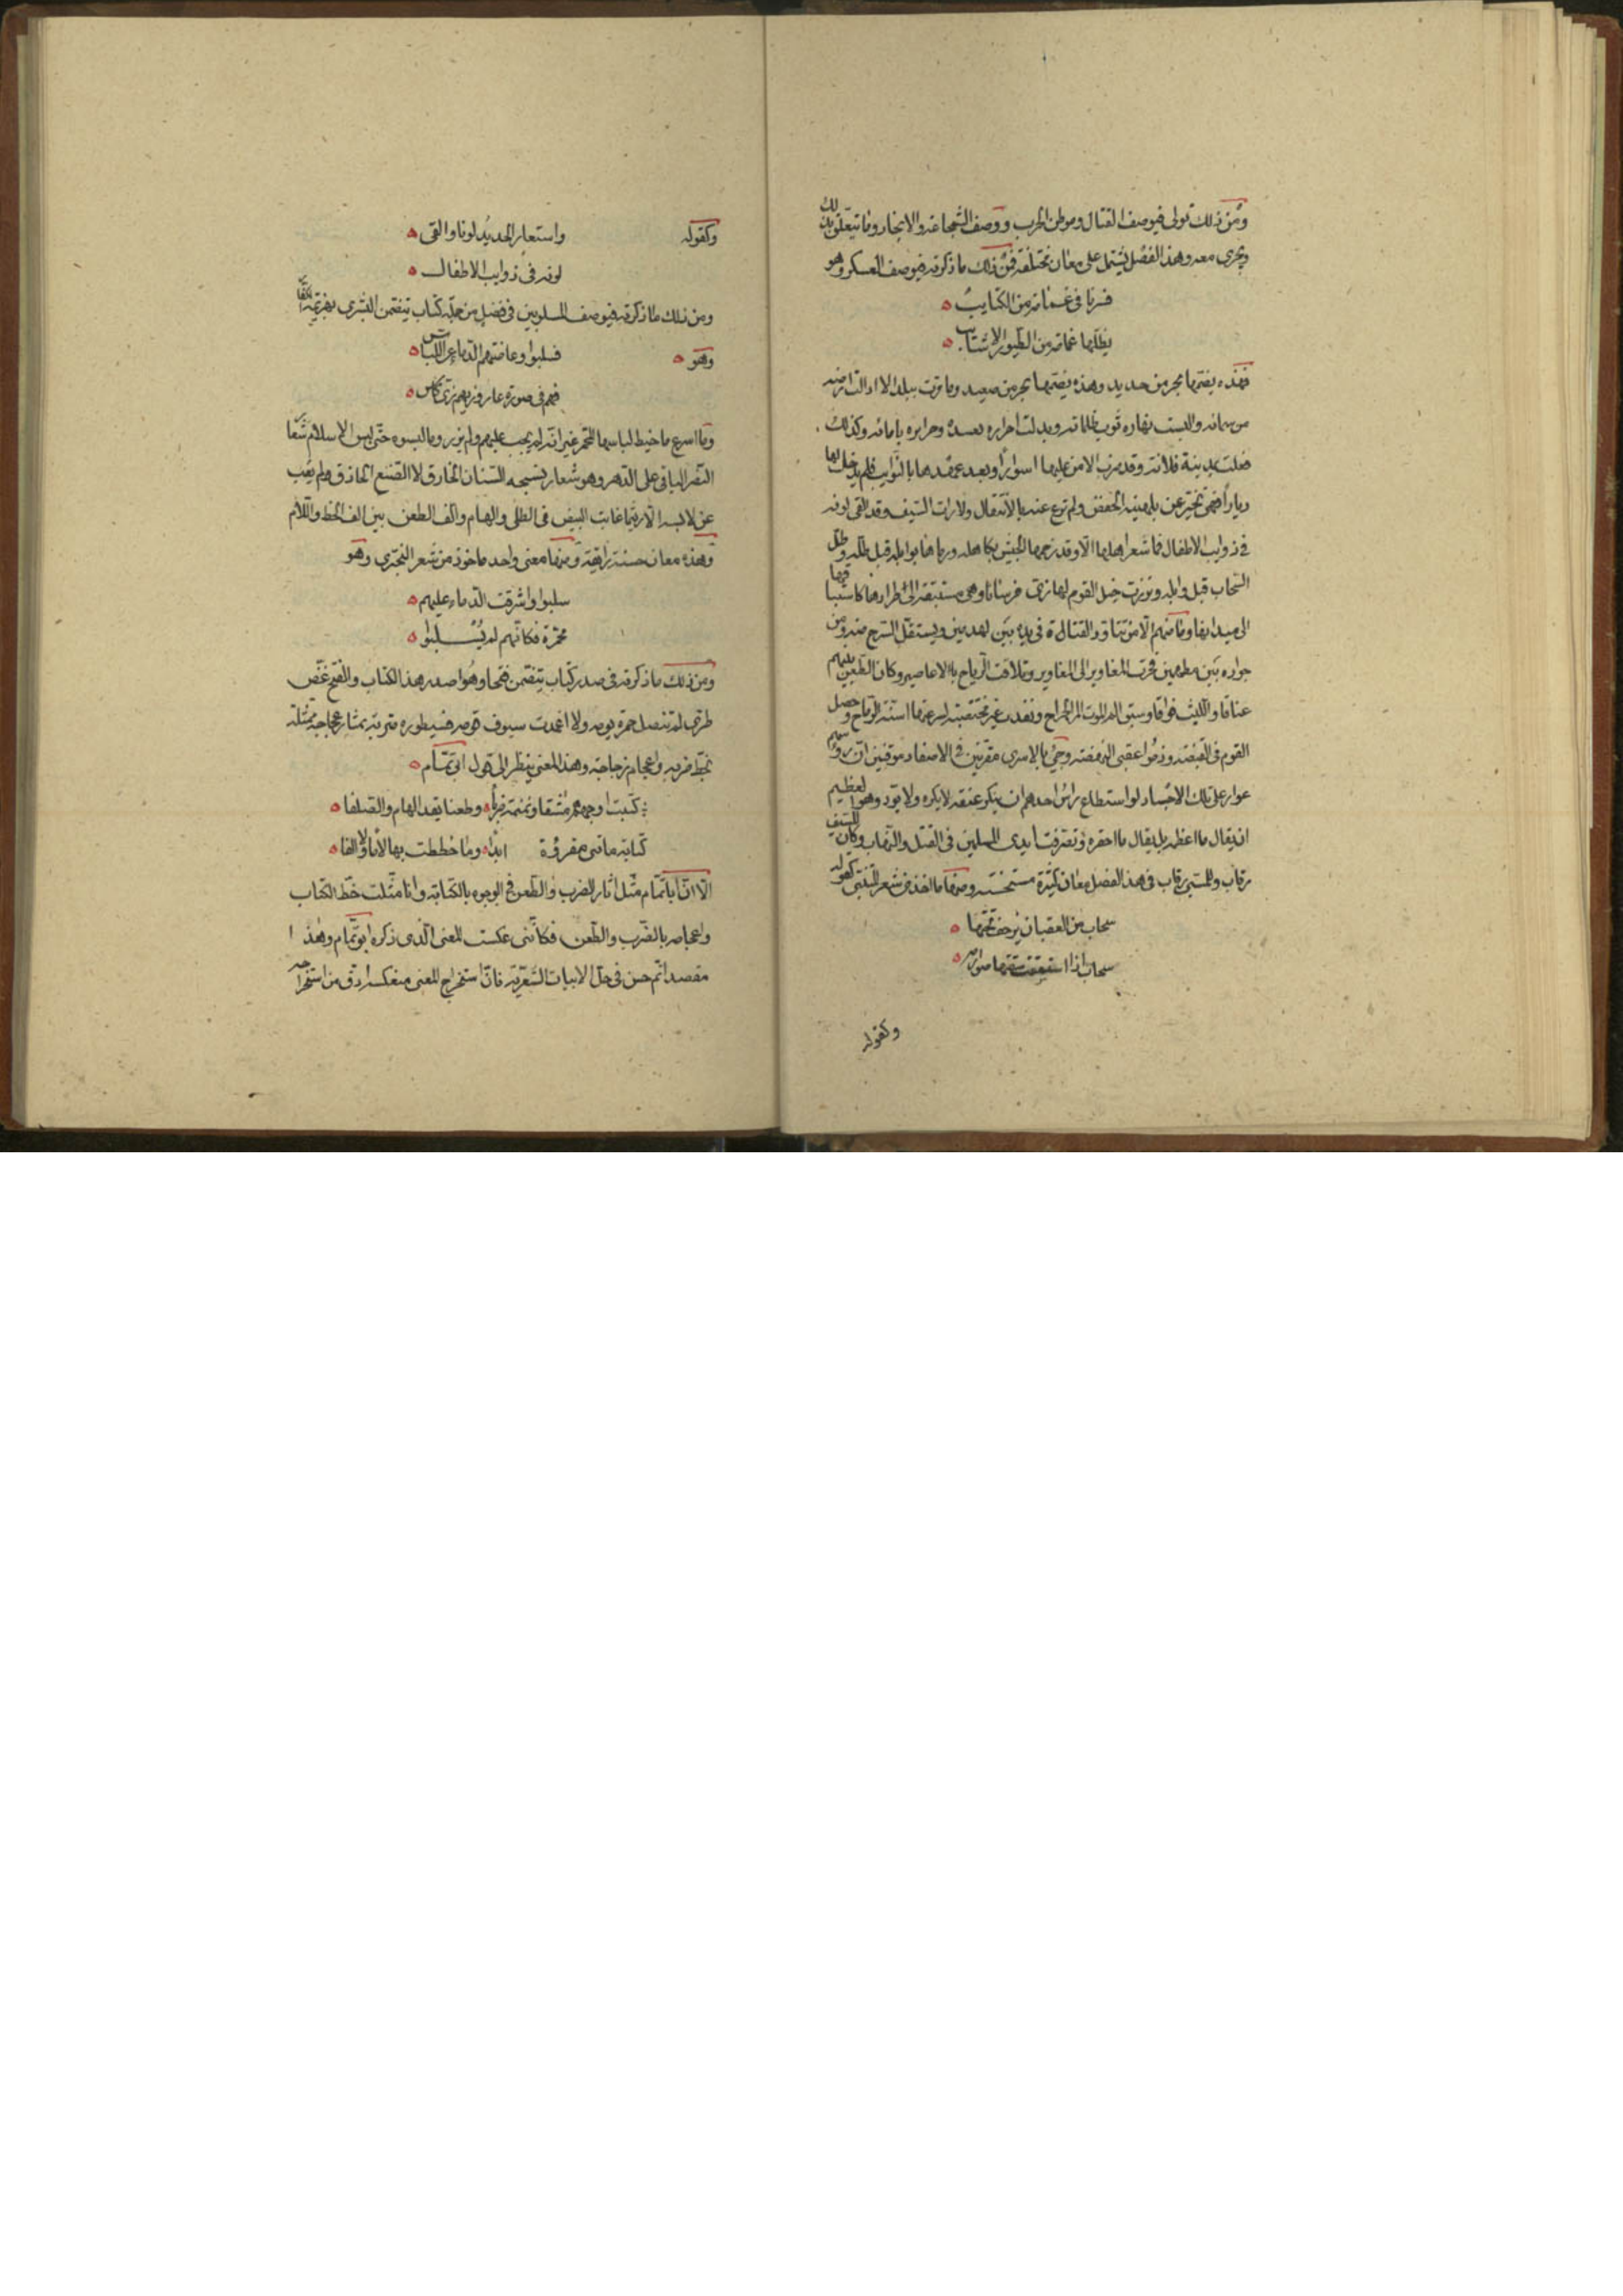 ومن ذلك قولى فى وصف القتال وموطن الحرب ووصف الشجاعة والانجاد وما يتعلق بذلك
ويجرى معه وهذا الفصل يشتمل على معان مختلفة فمن ذلك ما ذكرته فى وصف العسكر وهو
فسرنا فى غمامة من الكتايب
يظلها غمامة من الطيور الاشتايب
فهذه يضمها بحر من حديد وهذه يضمها بحر من صعيد وما مرت ببلد الا ادالت ارضه
من سمائه والبست نهاره ثوب ظلمائه وبدلت احراره بعبيده وحرايره بامائه وكذلك
فعلت بمدينة فلانة وقد ضرب الامن عليها اسوارا وبعد عهدها بالنوايب فلم يدخل لها
ديارا فهى تخبر عن بلهنية الخفض ولم ترع عنه بالانتقال ولا رات السيف وقد القى لونه
فى ذوايب الاطفال فما شعر اهلها الا وقد زحمها الجيش بكاهله ورماها بوابله قبل طله وطل
السحاب قبل وابله وبرزت خيل القوم لها زى فرسانها وهى مستبقة الى طرادها كاستباقها
الى ميدانها وما منهم الا من تتاود القناة فى يده بين لهذمين ويستقل السرج منه ومن
جواده بين مطهمين فحرت المغاوير الى المغاوير وتلاقت الرياح بالاعاصير وكان الطعن بينهم
عناقا والليث فواقا وسبق الم الموت الم الجراح ونفدت غير مختضبة لسرعتها اسنة الرماح وحصل
القوم فى القبضة وذموا عقبى النهضة وجئ بالاسرى مقرنين فى الاصفاد موقنين ان رؤسهم
عوار على تلك الاجساد لو استطاع راس احدهم ان ينكر عنقه لانكره ولا يود وهو العظيم
ان يقال ما اعظمه بل يقال ما احقره وتصرفت ايدى المسلمين فى القتل والنهاب وكان للسيف
رقاب وللسبى رقاب فى هذا الفصل معان كثيرة مستحسنة ومنها ما اخذ من شعر المتنبى كقوله
سحاب من العقبان يزحف تحتها
سحاب اذا استسقت سقتها صوارمه
وكقوله
وكقوله واستعار الحديد لونا والقى
لونه فى ذوايب الاطفال
ومن ذلك ما ذكرته فى وصف المسلوبين فى فصل من جملة كتاب يتضمن البشرى بهزيمة الكفار
وهو فسلبوا وعاضتهم الدماء عن اللباس
فهم فى صورة عار وزيهم زى كاس
وما اسرع ما خيط لباسها المحمر غير انه لم يجب عليهم ولم يزر وما لبسوه حتى لبس الاسلام شعار
النصر الباقى على الدهر وهو شعار نسجه السنان الخارق لا الصنع الحاذق ولم يغب
عن لابسه الا ريثما غابت البيض فى الطلى والهام والف الطعن بين الف الخط واللام
وهذه معان حسنة رايقة ومنها معنى واحد ماخوذ من شعر البحترى وهو
سلبوا واشرقت الدماء عليهم
محمرة فكانهم لم يسلبوا
ومن ذلك ما ذكرته فى صدر كتاب يتضمن فتحا وهو اصدر هذا الكتاب والفتح غض
طرى لم تنصل حمرة يومه ولا اغمدت سيوف قومه فسطوره متربة بمثار عجاجه ممثلة
بخط ضربه واعجام زجاجه وهذا المعنى ينظر الى قول ابى تمام
كتبت اوجههم مشقا ونمنمة ضربا وطعنا يقد الهام والصلفا
كتابة ما تنى مقروة ابدا وما خططت بها لاما ولا الفا
الا ان ابا تمام مثل اثار الضرب والطعن فى الوجوه بالكتابة وانا مثلت خط الكتاب
واعجامه بالضرب والطعن فكاننى عكست المعنى الذى ذكره ابو تمام وهذا
مقصد اتم حسن فى حل الابيات الشعرية فان استخراج المعنى منعكسا ادق من استخراجه